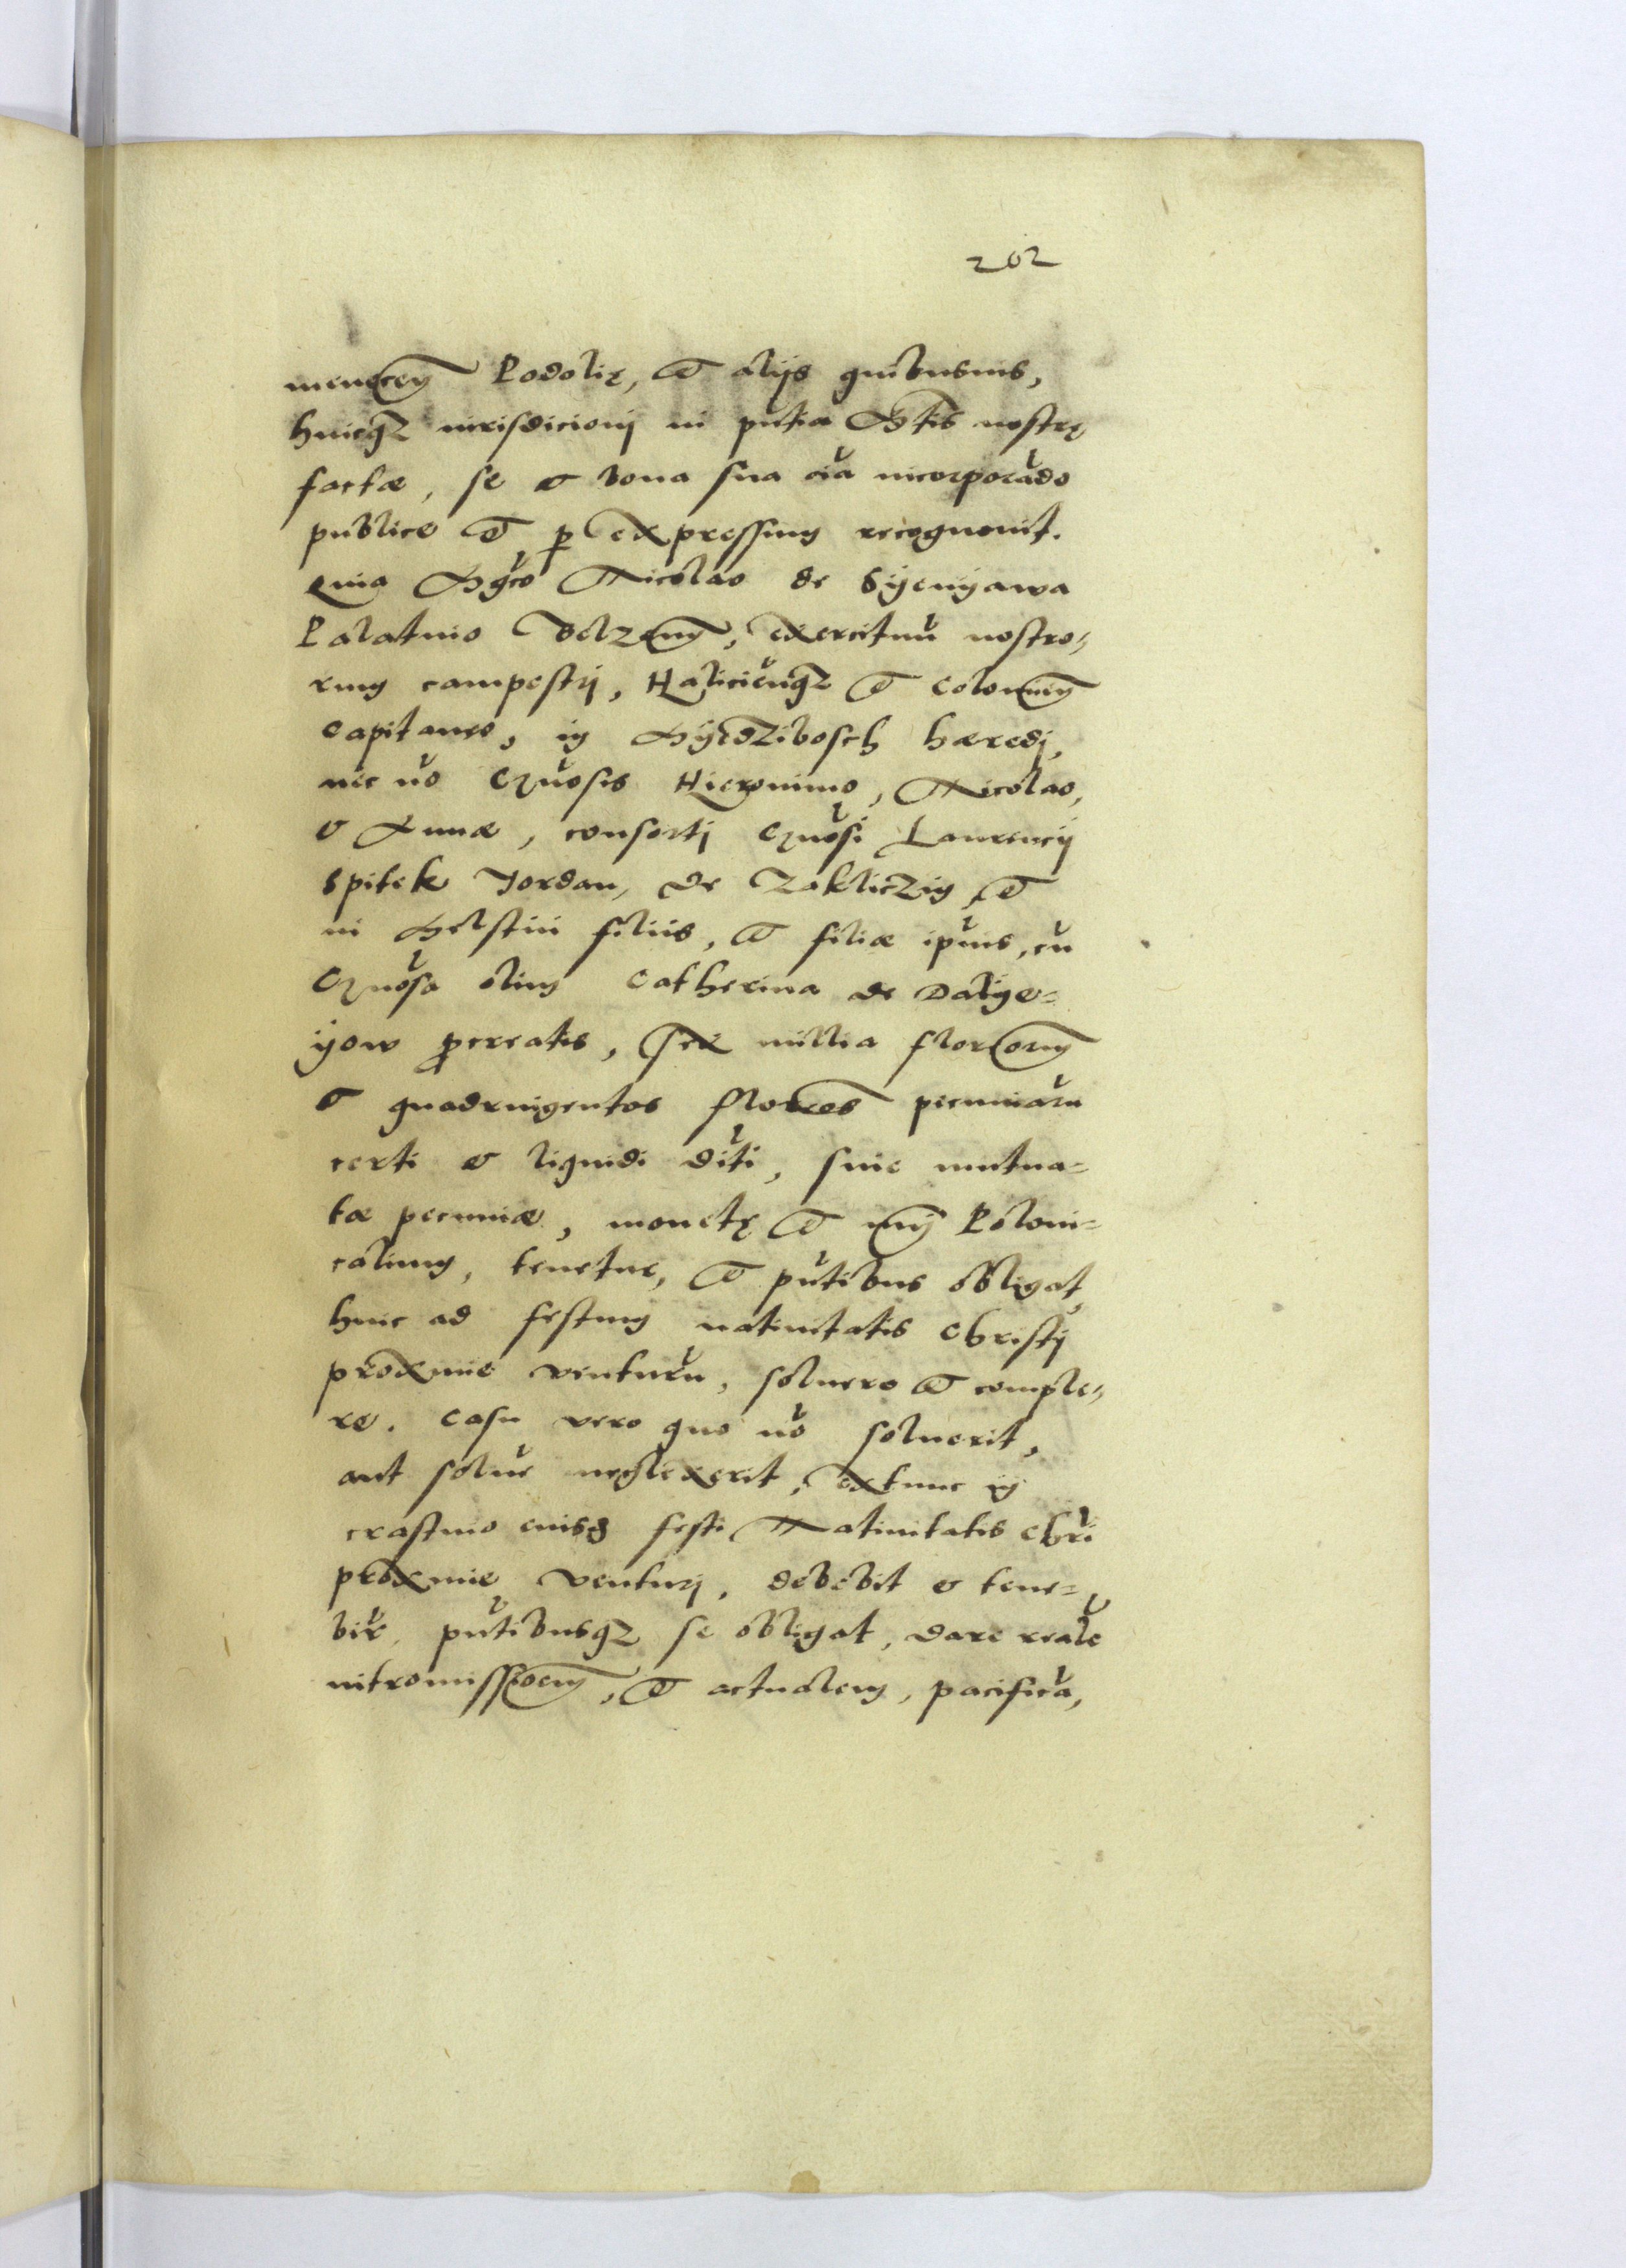 202
menecen̄ Podolię, et alijs quibusuis,
huicq₃ iurisdicionj in pn̄tia Mtis nostrę
factæ, se et bona sua oīa incorporādo
publice et p expressum recognouit.
Quia Mgco Nicolao de Syenyawa
Palatino Belzen̄, exercituū nostro₌
rum campestrj, Haliciēnq₃ et Colomien̄
Capitaneo, in Myedzibosch hæredj,
nec nō Gn̄osis Hieronimo, Nicolao,
et Annæ, consortj Gn̄osi Laurencij
Spitek Jordan, de Zakliczin, et
in Melstin filiis, et filiæ ipīus, cū
Gn̄osa olim Catherina de Dalye₌
yow procreatis, sex millia florenorum
et quadringentos florenos pecuniarū
certi et liquidi dēbiti, siue mutua₌
tæ pecuniæ, monetę et nrī Poloni₌
calium, tenetur, et pn̄tibus obligat,
hinc ad festum natiuitatis Christj
proxime venturū, soluere et comple₌
re. Casu vero quo nō soluerit,
aut solue neglexerit, extunc in
crastino eiusd festi Natiuitatis Chrī
proxime venturj, debebit et tene₌
bit, pn̄tibusq₃ se obligat, dare realē
intromissioem, et actualem, pacificā,